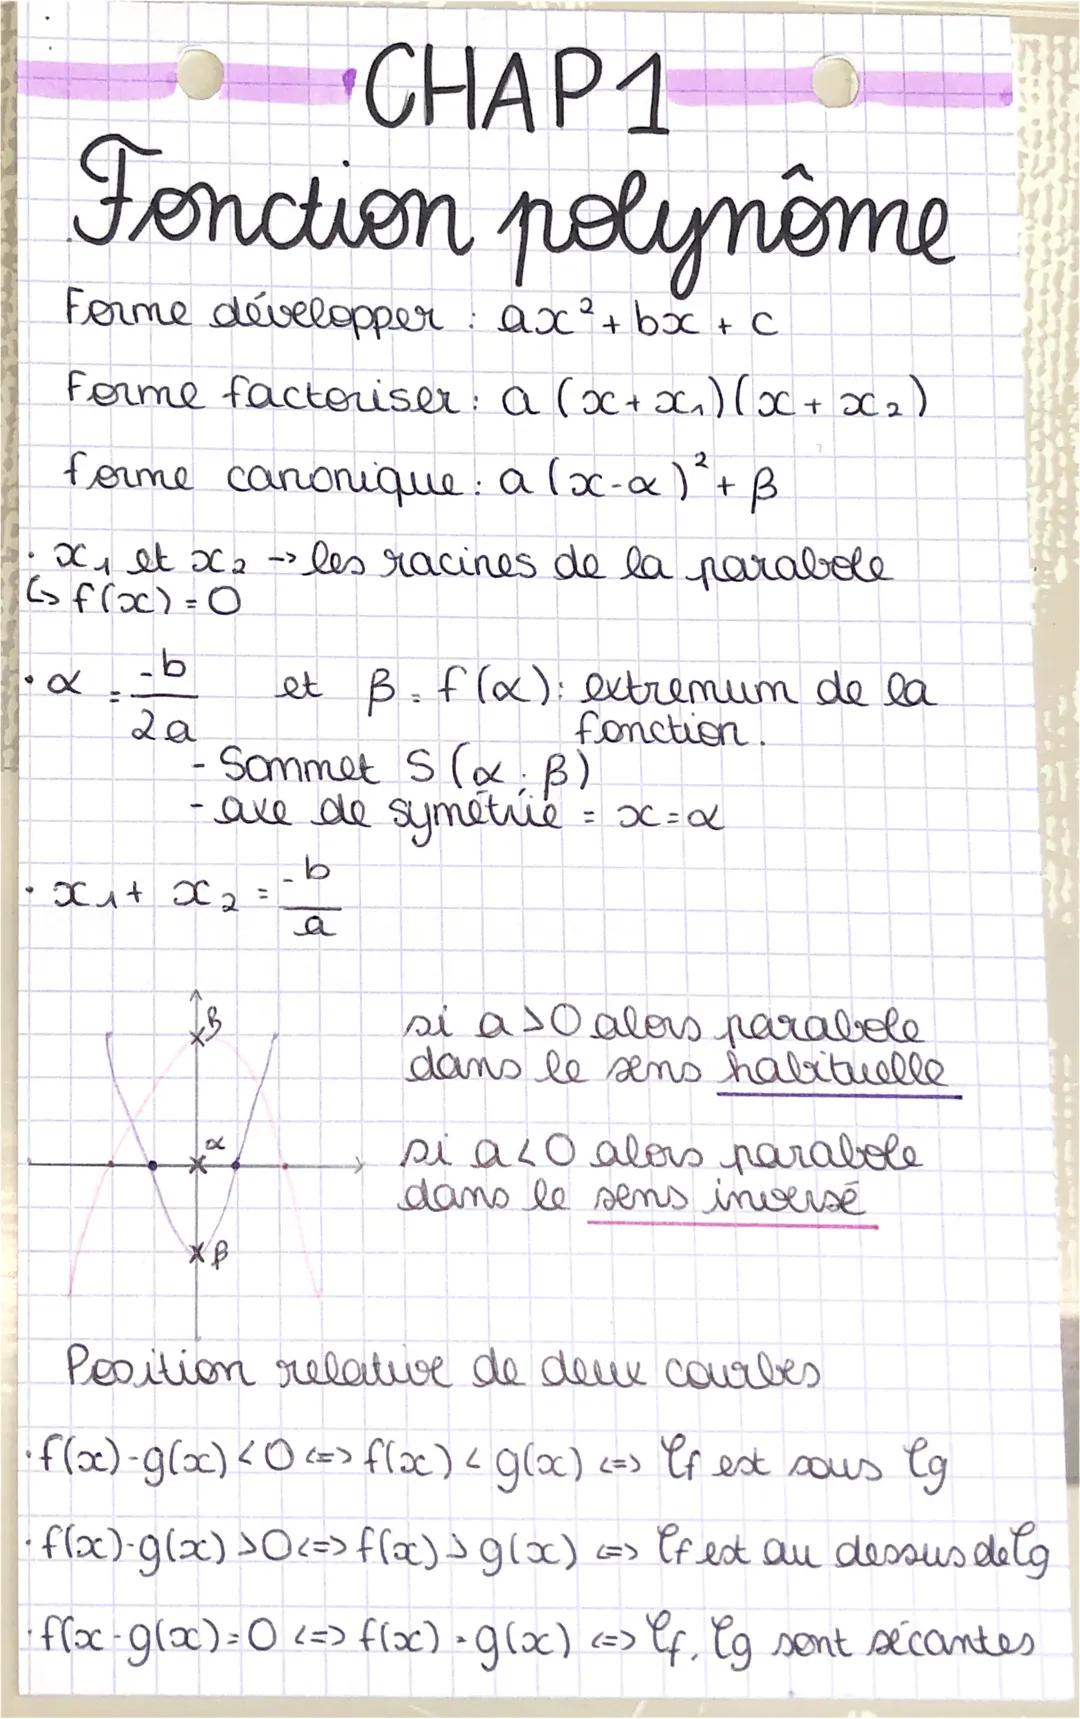 CHAP 1
Fonction polynôme
Forme développer : ax² + bx + c
Forme factoriser : a (x + x₁)(x + x₂)
forme canonique : a (x-α)² + β
· x₁ et x₂ -> les racines de la parabole
↳ f(x) = 0
· α = -b/2a et β = f(α) : extremum de la
fonction.
- Sommet S (α ; β)
- axe de symétrie = x = α
· x₁ + x₂ = -b/a
β
α
β
si a > 0 alors parabole
dans le sens habituelle
si a < 0 alors parabole
dans le sens inversé
Position relative de deux courbes
· f(x) - g(x) < 0 <=> f(x) < g(x) <=> Cf est sous Cg
· f(x) - g(x) > 0 <=> f(x) > g(x) <=> Cf est au dessus de Cg
· f(x - g(x) = 0 <=> f(x) = g(x) <=> Cf, Cg sont sécantes